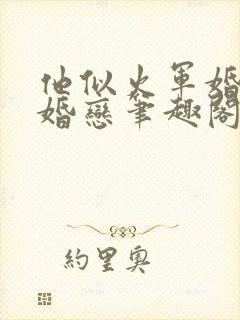 他似火軍婚
婚戀筆趣閣
約里奧